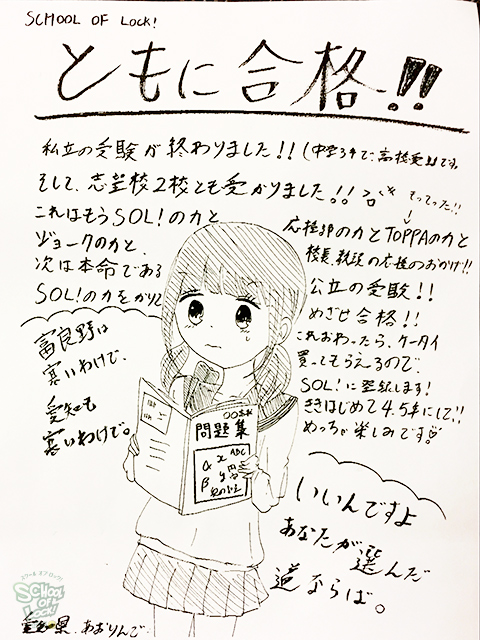 SCHOOL OF LOCK!
ともに合格!!
私立の受験が終わりました!!(中学3年で、高校受験です。
そして、志望校2校とも受かりました!!
もってった!!
これはもうSOL!の力と
ジョークの力と、
応援部の力とTOPPAの力と
校長、教頭の応援のおかげ!!
次は本命である
公立の受験!!
SOL!の力をかりて
めざせ合格!!
これおわったら、ケータイ
買ってもらえるので、
SOL!に登録します!
ききはじめて4.5年にして!!
めっちゃ楽しみです♡
富良野は
寒いわけで、
愛知も
寒いわけで。
問題集
α x ABC
β y 円
いいんですよ
あなたが選んだ
道ならば。
スクール オブ ロック!
SCHOOL OF LOCK!
愛知県 あおりんご